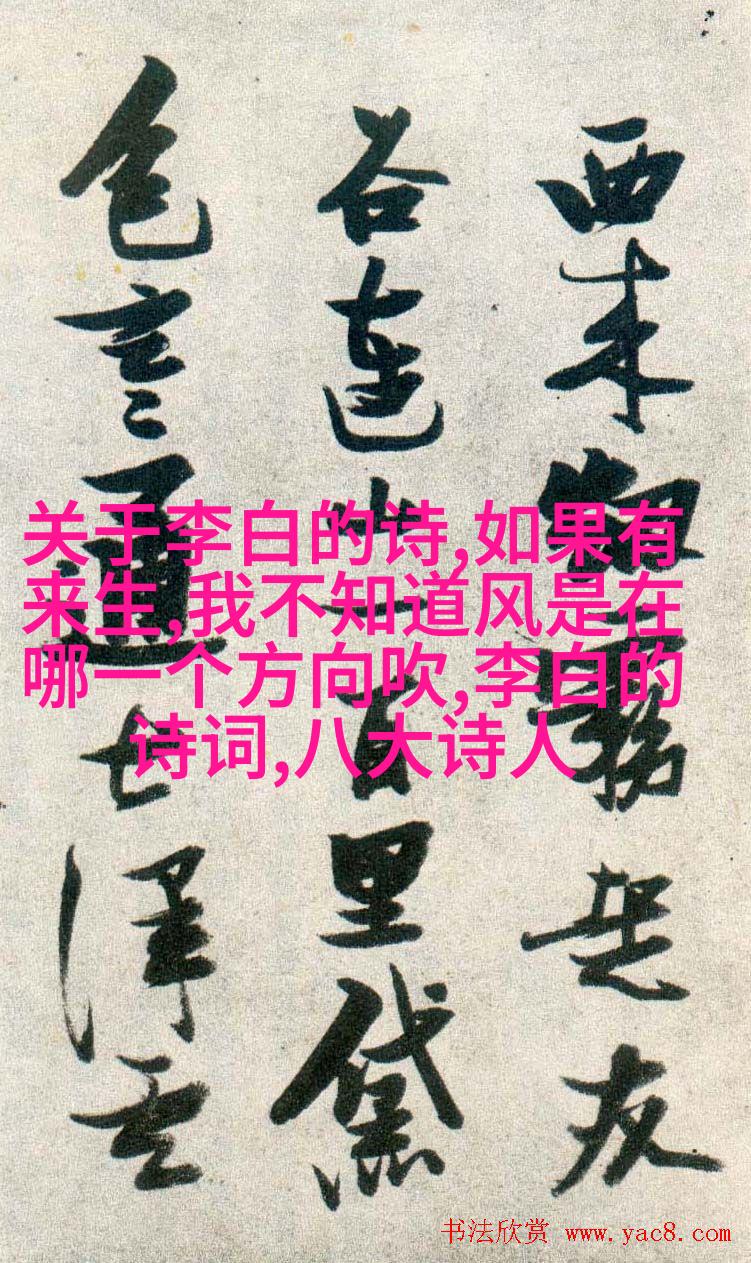 西来
谷連山一百里黛
色言通七澤
关于李白的诗,如果有
来生,我不知道风是在
哪一个方向吹,李白的
诗词,八大诗人
书法欣赏 www.yac8.com